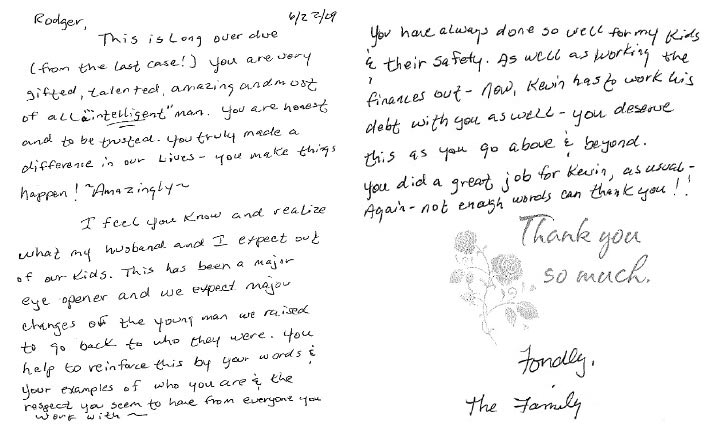 Rodger, 6/22/09
This is Long over due
(from the last case!) you are very
gifted, talented, amazing and most
of all "intelligent" man. You are honest
and to be trusted. You truly made a
difference in our Lives - you make things
happen! ~Amazingly~
I feel you know and realize
what my husband and I expect out
of our kids. This has been a major
eye opener and we expect major
changes of the young man we raised
to go back to who they were. You
help to reinforce this by your words &
your examples of who you are & the
respect you seem to have from everyone you
work with ~
You have always done so well for my Kids
& their safety. As well as working the
finances out - Now, Kevin has to work his
debt with you as well - you deserve
this as you go above & beyond.
You did a great job for Kevin, as usual -
Again - not enough words can thank you!!
Thank you
so much.
Fondly,
The Family